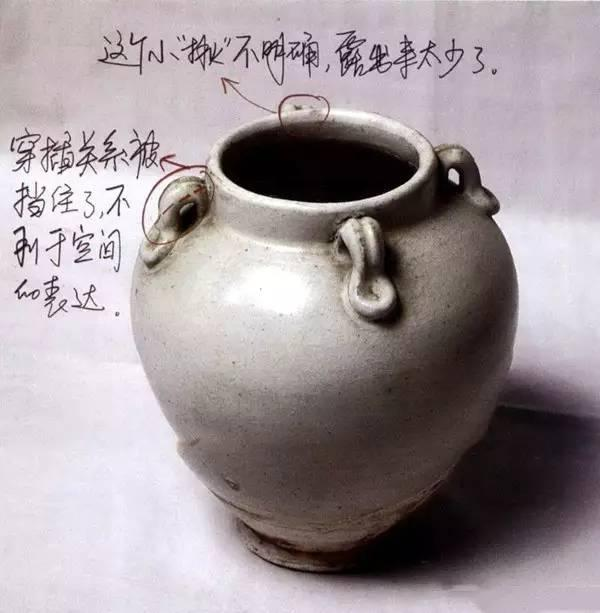 这个小"揪"不明确,露出来太少了。
穿插关系被
挡住了,不
利于空间
的表达。